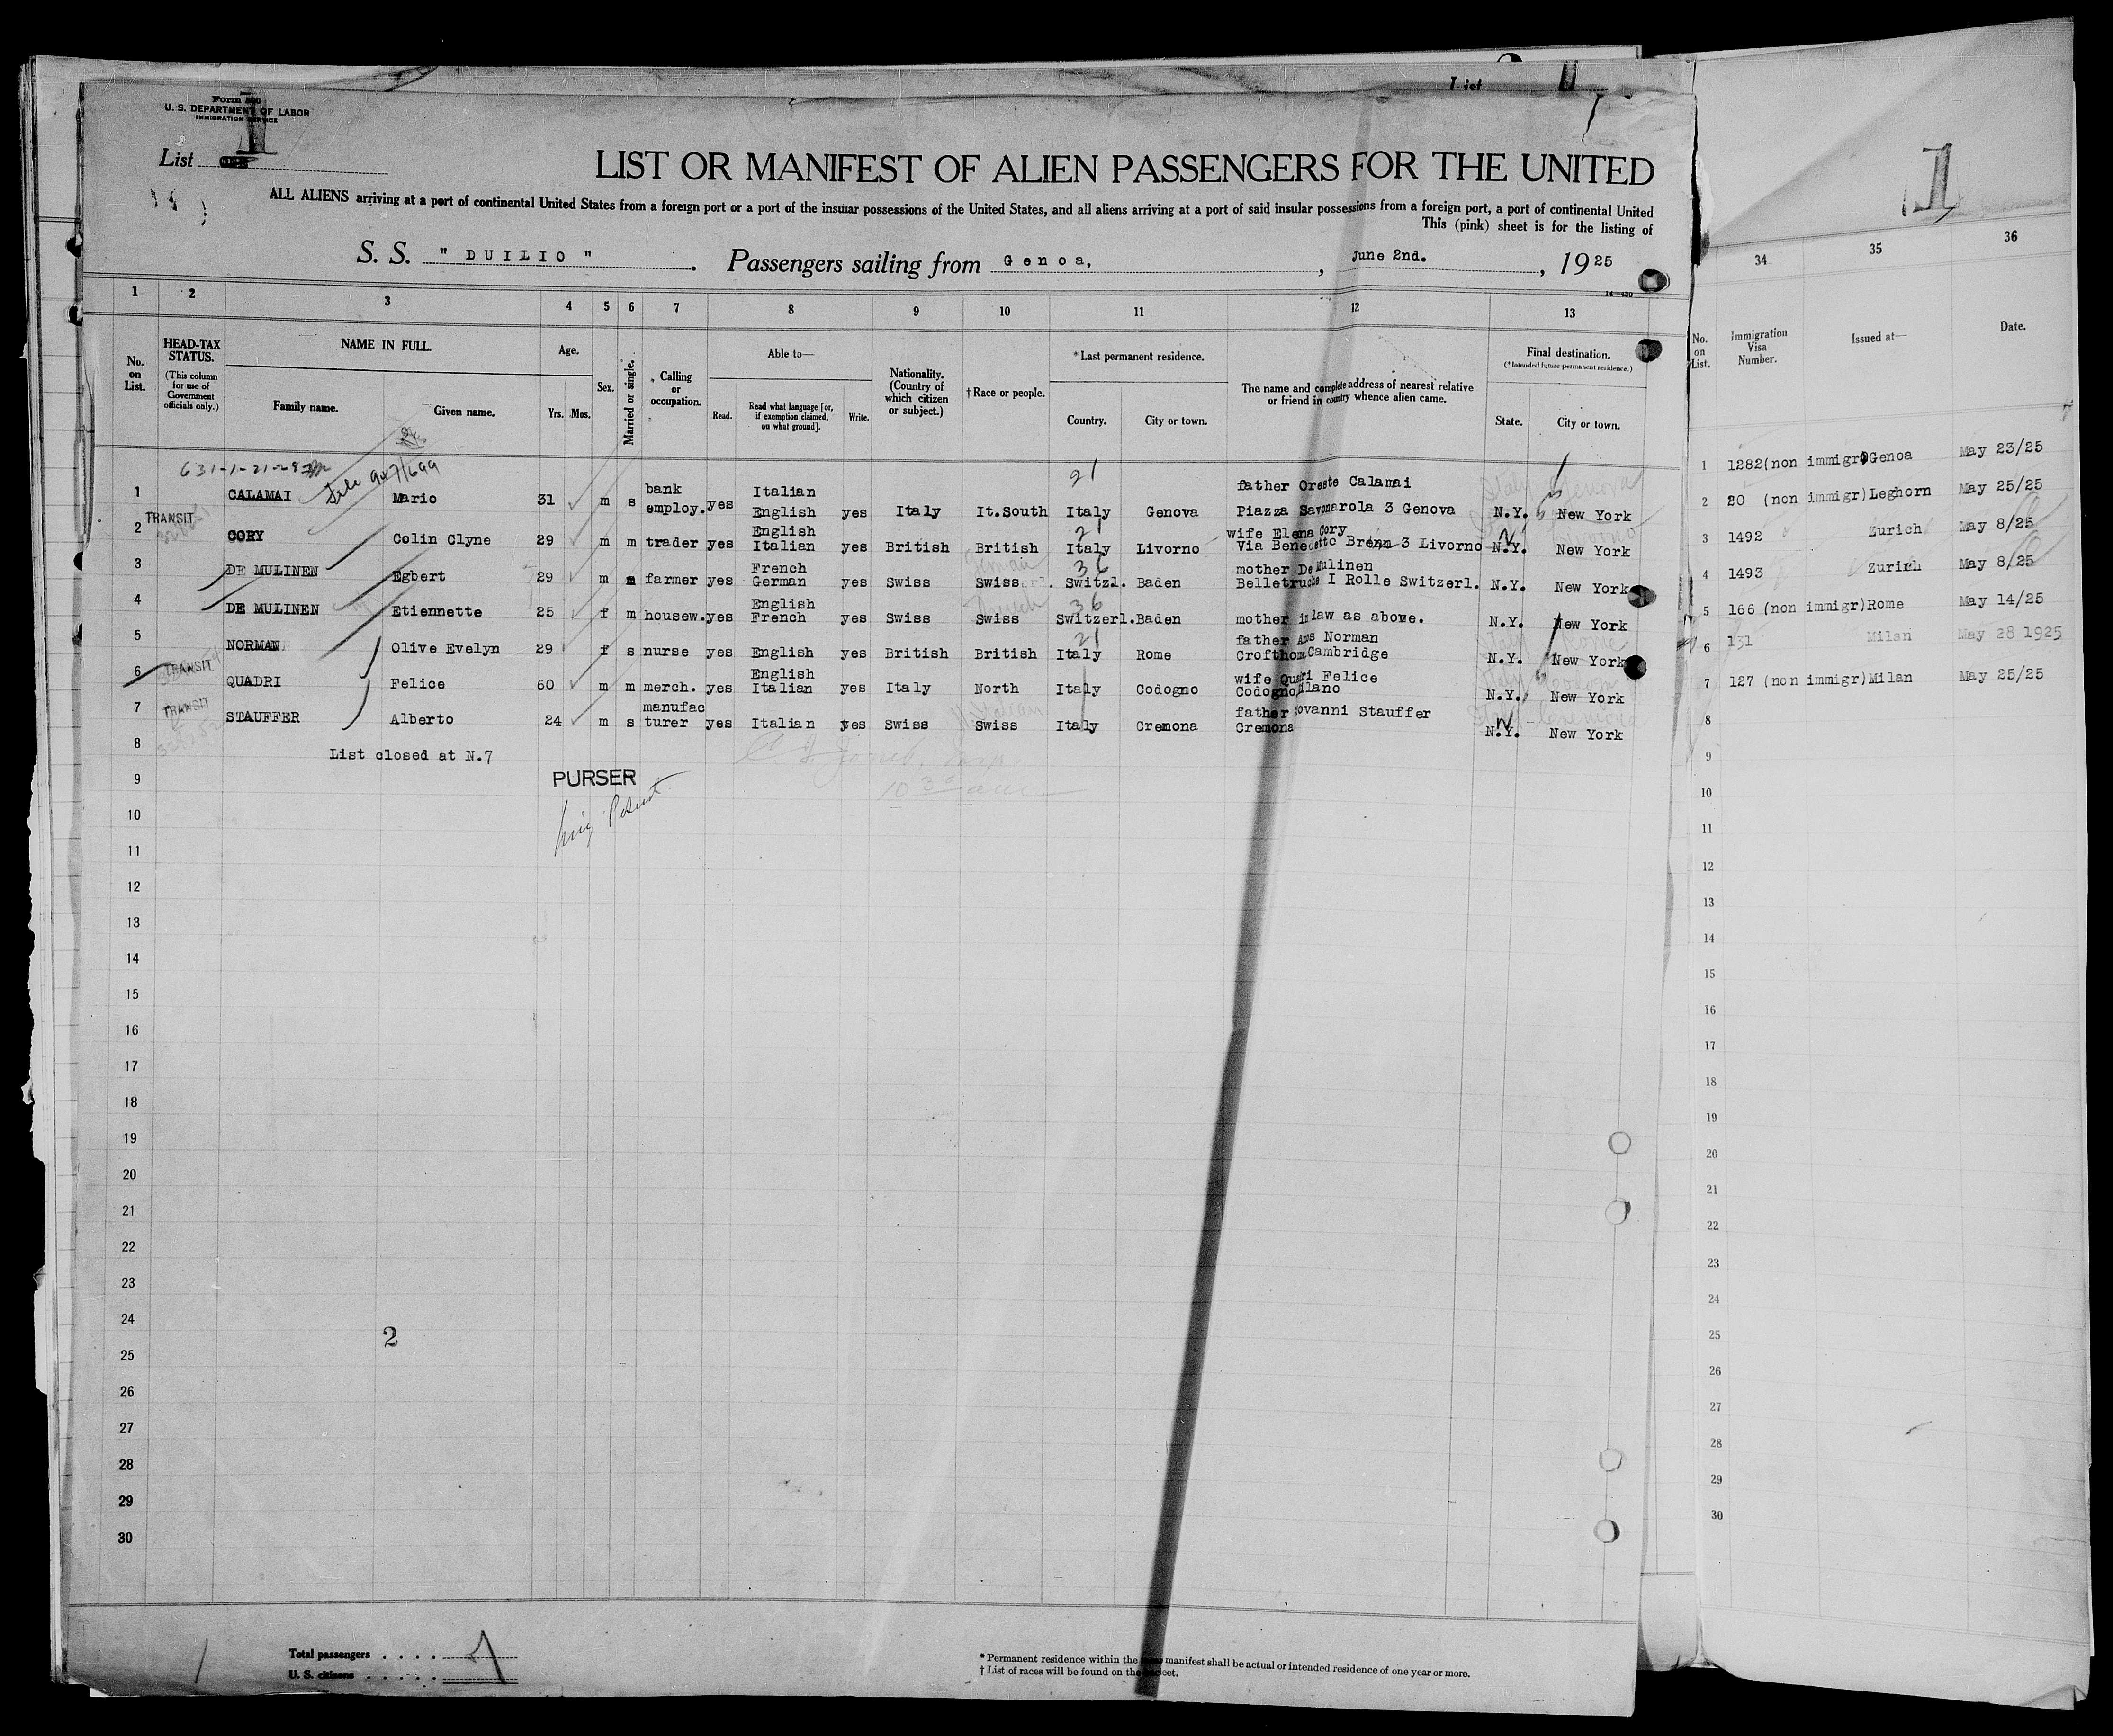 Form 500
U. S. DEPARTMENT OF LABOR
IMMIGRATION SERVICE
List
1
LIST OR MANIFEST OF ALIEN PASSENGERS FOR THE UNITED
ALL ALIENS arriving at a port of continental United States from a foreign port or a port of the insular possessions of the United States, and all aliens arriving at a port of said insular possessions from a foreign port, a port of continental United
This (pink) sheet is for the listing of
S. S. " DUILIO " . Passengers sailing from Genoa, , June 2nd. , 1925
1 2 3 4 5 6 7 8 9 10 11 12 13
No. on List. HEAD-TAX STATUS. (This column for use of Government officials only.) NAME IN FULL. Family name. Given name. Age. Yrs. Mos. Sex. Married or single. Calling or occupation. Able to— Read. Read what language [or, if exemption claimed, on what ground]. Write. Nationality. (Country of which citizen or subject.) †Race or people. *Last permanent residence. Country. City or town. The name and complete address of nearest relative or friend in country whence alien came. Final destination. (*Intended future permanent residence.) State. City or town.
1 CALAMAI Mario 31 m s bank employ. yes Italian English yes Italy It.South Italy Genova father Oreste Calamai Piazza Savonarola 3 Genova N.Y. New York
2 TRANSIT CORY Colin Clyne 29 m m trader yes English Italian yes British British Italy Livorno wife Elena Cory Via Benedetto Brenn 3 Livorno N.Y. New York
3 DE MULINEN Egbert 29 m m farmer yes French German yes Swiss Swiss Switzl. Baden mother De Mulinen Belletruche I Rolle Switzerl. N.Y. New York
4 DE MULINEN Etiennette 25 f m housew. yes English French yes Swiss Swiss Switzerl. Baden mother in law as above. N.Y. New York
5 NORMAN Olive Evelyn 29 f s nurse yes English yes British British Italy Rome father Norman Cambridge N.Y. New York
6 TRANSIT QUADRI Felice 60 m m merch. yes English Italian yes Italy North Italy Codogno wife Quadri Felice Codogno Milano N.Y. New York
7 TRANSIT STAUFFER Alberto 24 m s manufacturer yes Italian yes Swiss Swiss Italy Cremona father Giovanni Stauffer Cremona N.Y. New York
8 List closed at N.7
9 PURSER
10
11
12
13
14
15
16
17
18
19
20
21
22
23
24
2
25
26
27
28
29
30
Total passengers . . . .
U. S. citizens . . . . .
* Permanent residence within the manifest shall be actual or intended residence of one year or more.
† List of races will be found on the
List
1
34 35 36
No. on List. Immigration Visa Number. Issued at— Date.
1 1282 (non immigr) Genoa May 23/25
2 20 (non immigr) Leghorn May 25/25
3 1492 Zurich May 8/25
4 1493 Zurich May 8/25
5 166 (non immigr) Rome May 14/25
6 131 Milan May 28 1925
7 127 (non immigr) Milan May 25/25
8
9
10
11
12
13
14
15
16
17
18
19
20
21
22
23
24
25
26
27
28
29
30